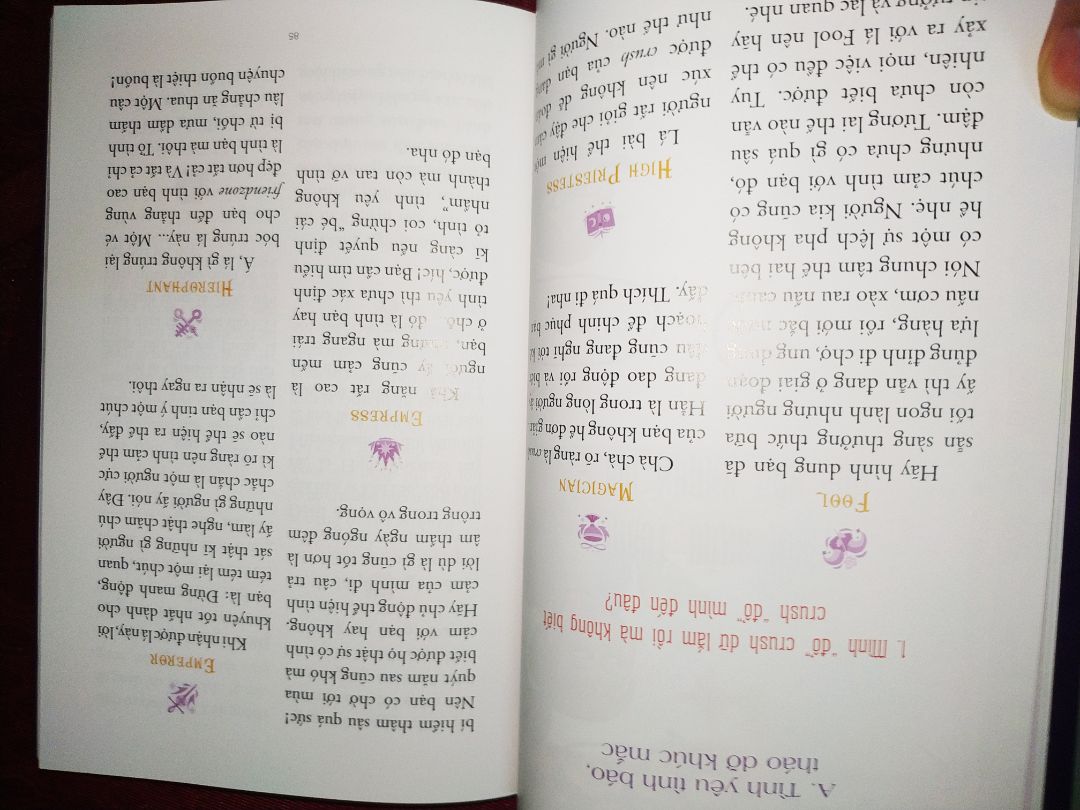 A. Tình yêu tình báo,
tháo dỡ khúc mắc
1. Mình “đổ” crush dữ lắm rồi mà không biết
crush “đổ” mình đến đâu?
FOOL
Hãy hình dung bạn đã
sẵn sàng thưởng thức bữa
tối ngon lành nhưng người
ấy thì vẫn đang ở giai đoạn
đủng đỉnh đi chợ, ung dung
lựa hàng, rồi mới bắc nước
nấu cơm, xào rau nấu canh.
Nói chung tâm thế hai bên
có một sự lệch pha không
hề nhẹ. Người kia cũng có
chút cảm tình với bạn đó,
nhưng chưa có gì quá sâu
đậm. Tương lai thế nào vẫn
còn chưa biết được. Tuy
nhiên, mọi việc đều có thể
xảy ra với lá Fool nên hãy
tin tưởng và lạc quan nhé.
MAGICIAN
Chà chà, rõ ràng là crush
của bạn không hề đơn giản
Hẳn là trong lòng người ấy
đang dao động rồi và
đâu cũng đang nghĩ tới kế
hoạch để chinh phục bạn
đấy. Thích quá đi nha!
HIGH PRIESTESS
Lá bài thể hiện một
người rất giỏi che đậy cảm
xúc nên không dễ đoán
được crush của bạn đang
như thế nào. Người gì mà
bí hiểm thâm sâu quá sức!
Nên bạn có chờ tới mùa
quýt năm sau cũng khó mà
biết được họ thật sự có tình
cảm với bạn hay không.
Hãy chủ động thể hiện tình
cảm của mình đi, câu trả
lời dù là gì cũng tốt hơn là
âm thầm ngày ngóng đêm
trông trong vô vọng.
EMPRESS
Khả năng rất cao là
người ấy cũng cảm mến
bạn, nhưng mà ngang trái
ở chỗ... đó là tình bạn hay
tình yêu thì chưa xác định
được, híc! Bạn cần tìm hiểu
kĩ càng nếu quyết định
tỏ tình, coi chừng “bé cái
nhầm”, tình yêu không
thành mà còn tan vỡ tình
bạn đó nha.
EMPEROR
Khi nhận được lá này, lời
khuyên tốt nhất dành cho
bạn là: Đừng manh động,
tém tém lại một chút, quan
sát thật kĩ những gì người
ấy làm, nghe thật chăm chú
những gì người ấy nói. Đây
chắc chắn là một người cực
kì rõ ràng nên tình cảm thế
nào sẽ thể hiện ra thế đấy,
chỉ cần bạn tinh ý một chút
là sẽ nhận ra ngay thôi.
HIEROPHANT
À, lá gì không trúng lại
bốc trúng lá này... Một vé
cho bạn đến thẳng vùng
friendzone với tình bạn cao
đẹp hơn tất cả! Và tất cả chỉ
là tình bạn mà thôi. Tỏ tình
bị từ chối, mưa dầm thấm
lâu chẳng ăn thua. Một câu
chuyện buồn thiệt là buồn!
85